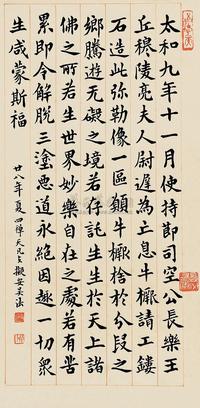 太和九年十一月使持節司空公長樂王
丘穆陵亮夫人尉遲為亡息牛橛請工鏤
石造此弥勒像一區願牛橛捨於分段之
鄉騰遊无礙之境若存託生生於天上諸
佛之所若生世界妙樂自在之處若有苦
累即令解脫三塗惡道永絕因趣一切衆
生咸蒙斯福
廿八年夏四禪天擬安吴法